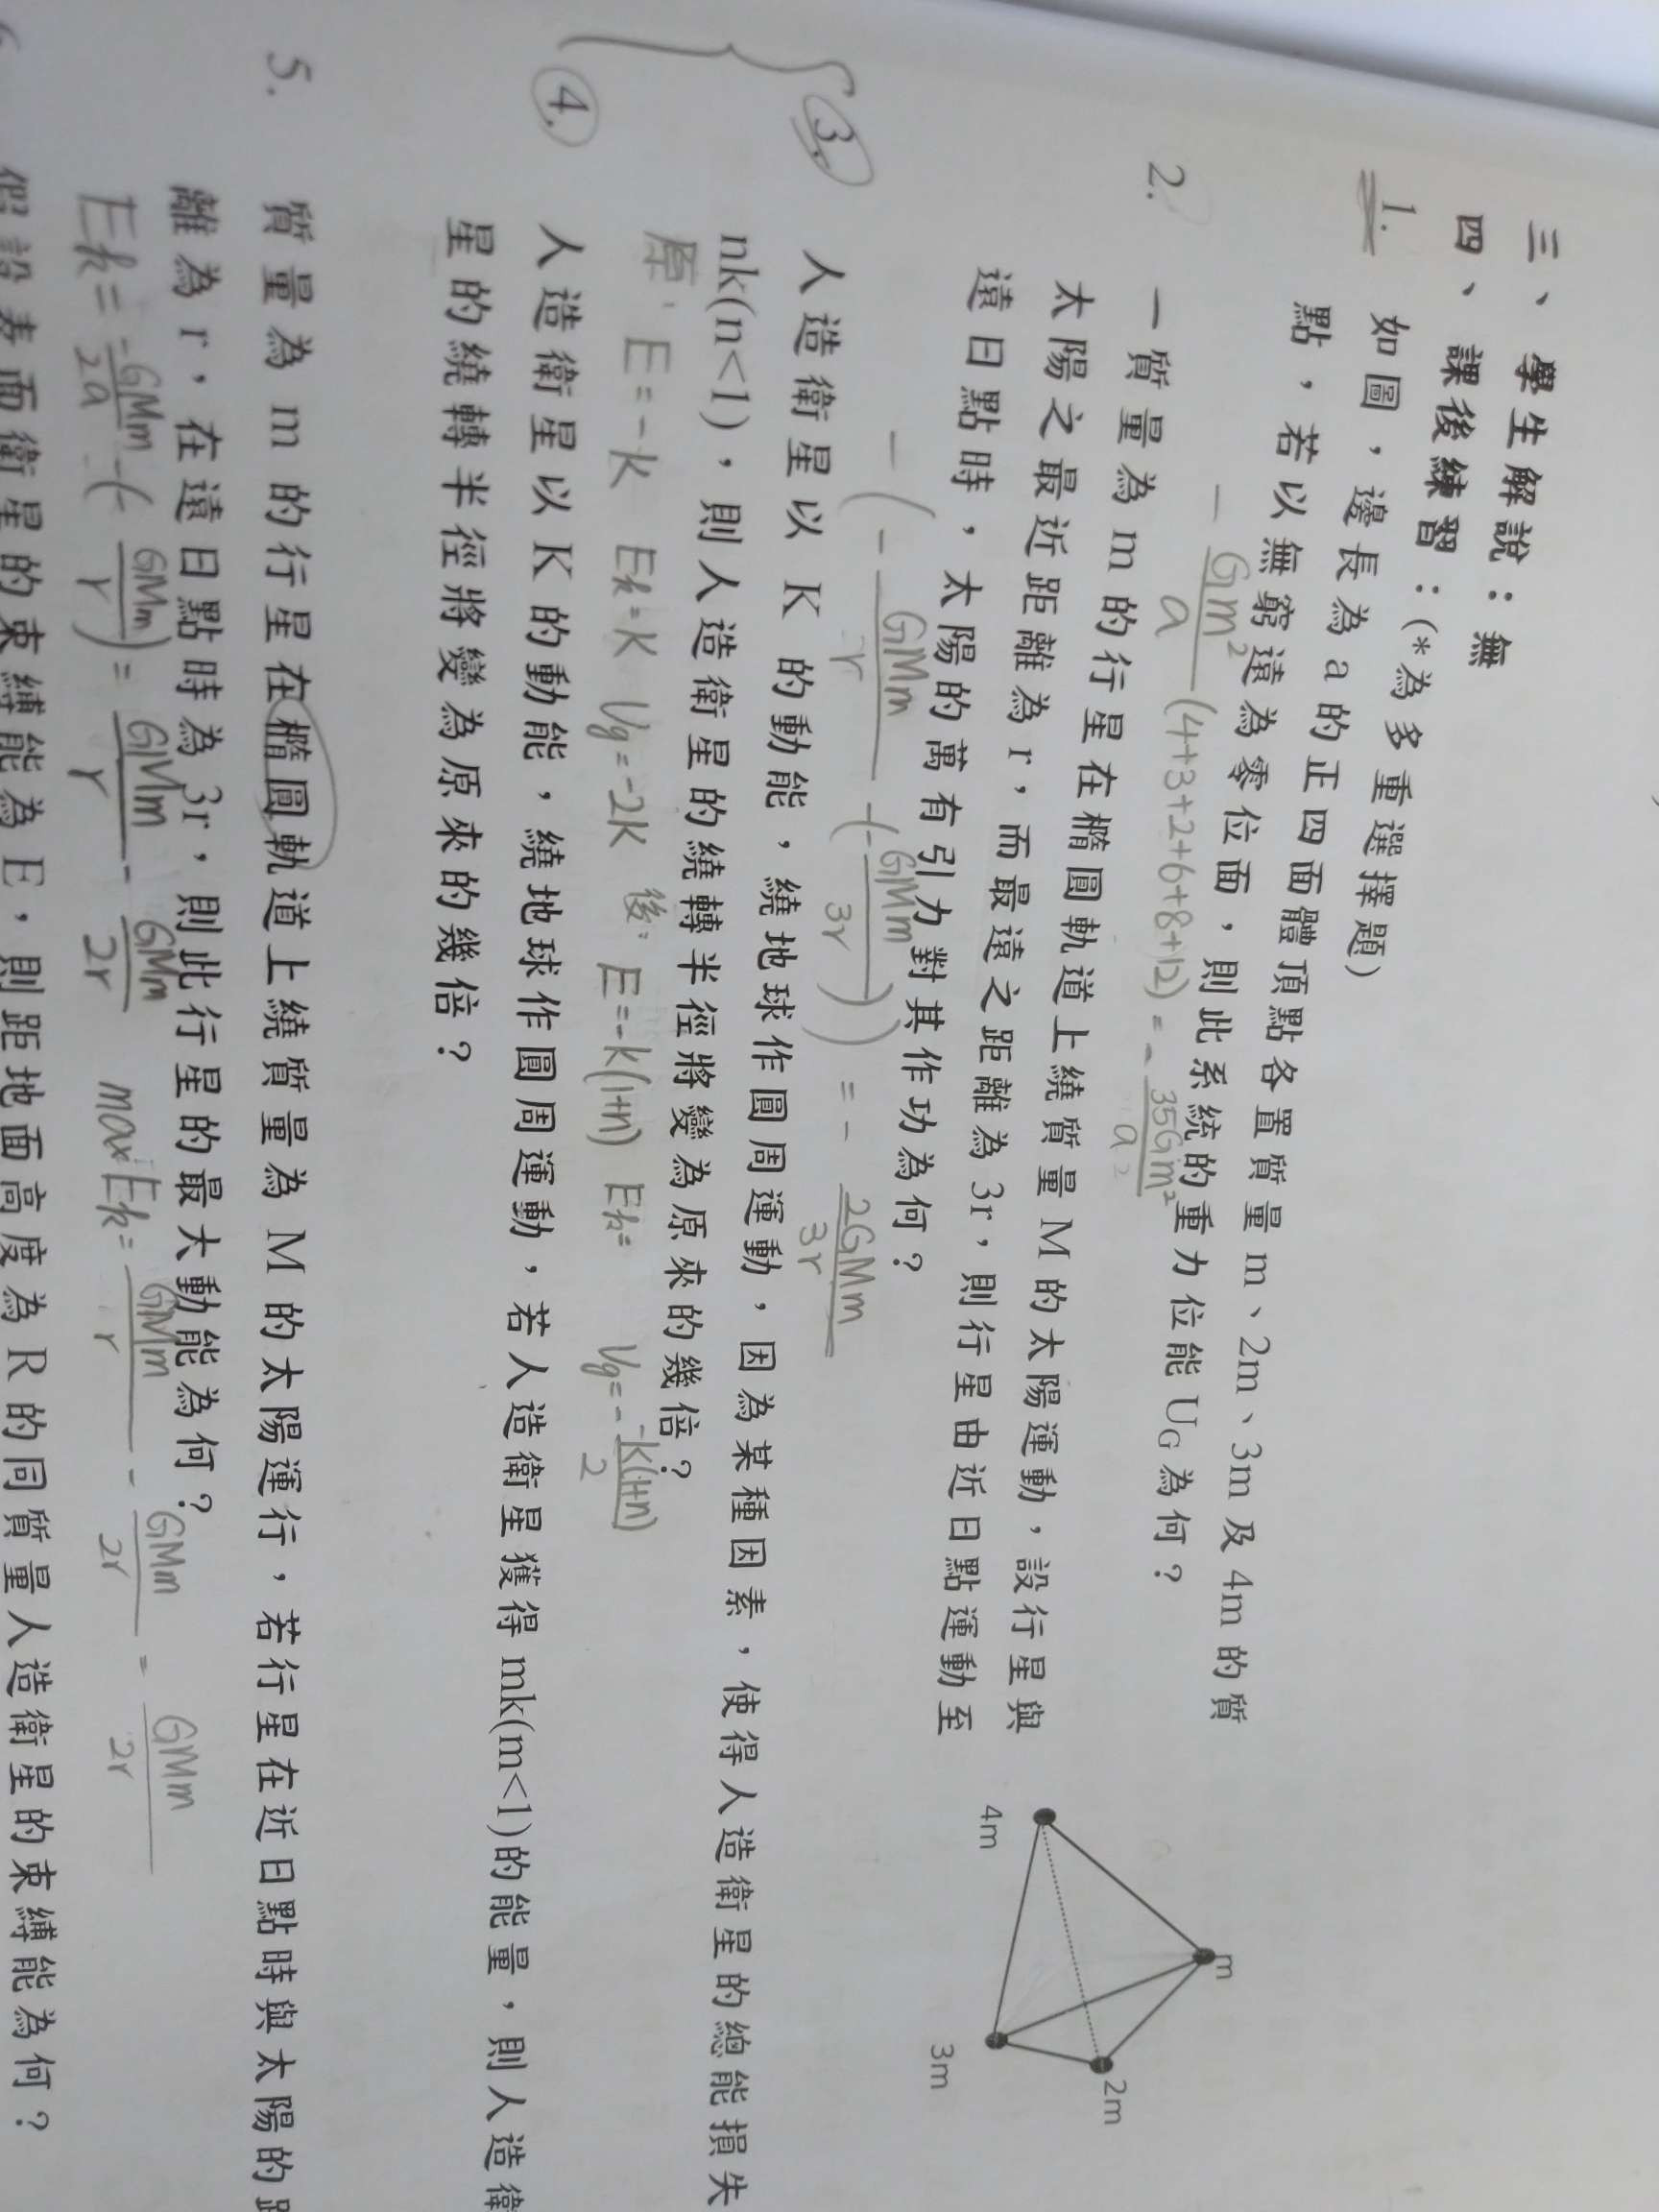 三、學生解說：無
四、課後練習：(*為多重選擇題)
1. 如圖，邊長為 a 的正四面體頂點各置質量 m、2m、3m 及 4m 的質
點，若以無窮遠為零位面，則此系統的重力位能 UG 為何？
- Gm²/a (4+3+2+6+8+12) = - 35Gm²/a
m
2m
3m
4m
2. 一質量為 m 的行星在橢圓軌道上繞質量 M 的太陽運動，設行星與
太陽之最近距離為 r，而最遠之距離為 3r，則行星由近日點運動至
遠日點時，太陽的萬有引力對其作功為何？
- (- GMm/r -(- GMm/3r)) = - 2GMm/3r
3. 人造衛星以 K 的動能，繞地球作圓周運動，因為某種因素，使得人造衛星的總能損失
nk(n<1)，則人造衛星的繞轉半徑將變為原來的幾倍？
原: E=-K Ek=K Ug=-2K 後: E=-K(1+n) Ek= Ug=- -K(1+n)/2
4. 人造衛星以 K 的動能，繞地球作圓周運動，若人造衛星獲得 mk(m<1)的能量，則人造衛
星的繞轉半徑將變為原來的幾倍？
5. 質量為 m 的行星在橢圓軌道上繞質量為 M 的太陽運行，若行星在近日點時與太陽的距
離為 r，在遠日點時為 3r，則此行星的最大動能為何？
Ek= -GMm/2a -(- GMm/r) = GMm/r - GMm/2r max Ek= GMm/r - GMm/2r = GMm/2r
假設表面衛星的束縛能為 E，則距地面高度為 R 的同質量人造衛星的束縛能為何？